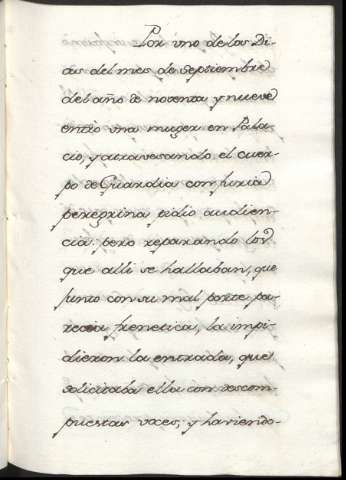 Por uno de los Di-
as del mes de Septiembre
del año de noventa y nueve
entro una muger en Pala-
cio, y atravesando el cuer-
po de Guardia con furia
peregrina pidio audien-
cia pero reparando los
que alli se hallaban, que
junto con su mal porte pa-
recia frenetica, la impi-
dieron la entrada, que
solicitaba ella con descom-
puestas voces, y haviendo-